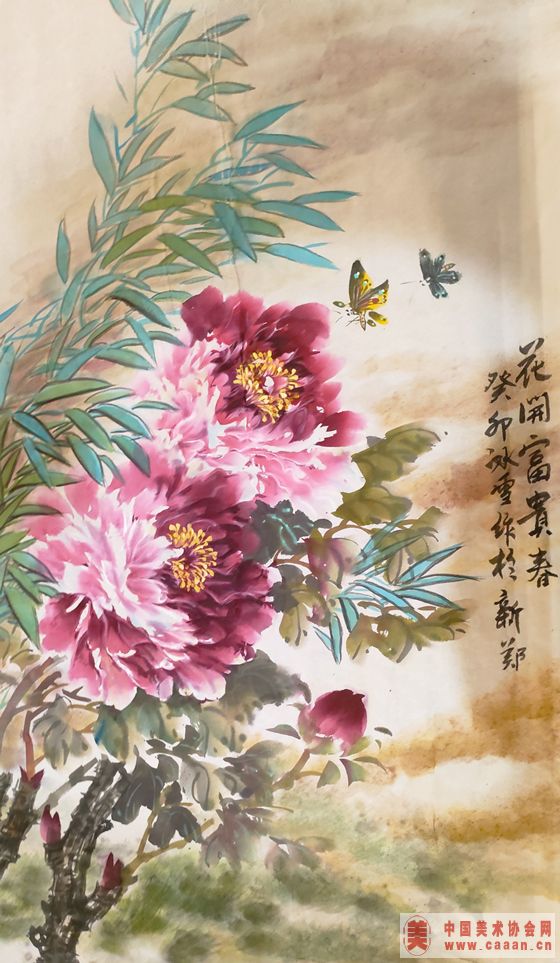 花開富貴春
癸卯冰雪作於新鄭
美 中国美术协会网
www.caaan.cn